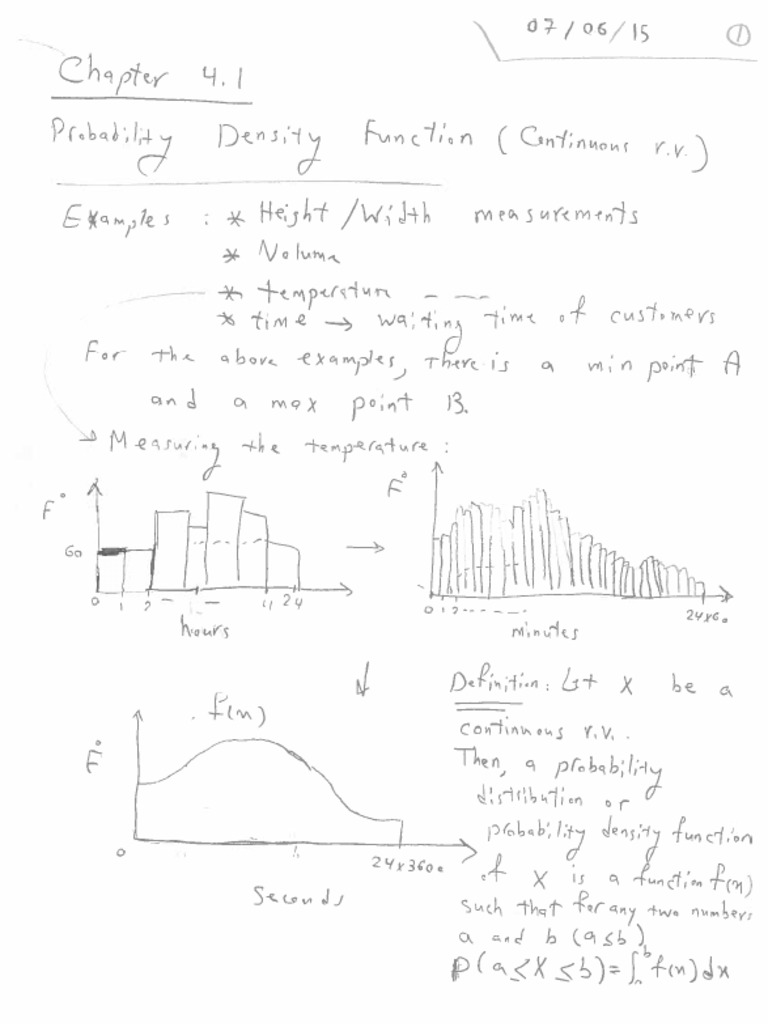 07/06/15 1
Chapter 4.1
Probability Density Function (Continuous r.v.)
Examples : * Height/Width measurements
* Volume
* temperature - —
* time → waiting time of customers
For the above examples, there is a min point A
and a max point B.
→ Measuring the temperature :
F°
60
0 1 2 - - 24
hours
→
F°
0 1 2 - - - - - -
24x60
minutes
f(x)
F°
0
24x3600
Seconds
Definition: Let X be a
continuous r.v.
Then, a probability
distribution or
probability density function
of X is a function f(x)
such that for any two numbers
a and b (a≤b)
P(a≤X≤b)=∫ₐᵇ f(x)dx